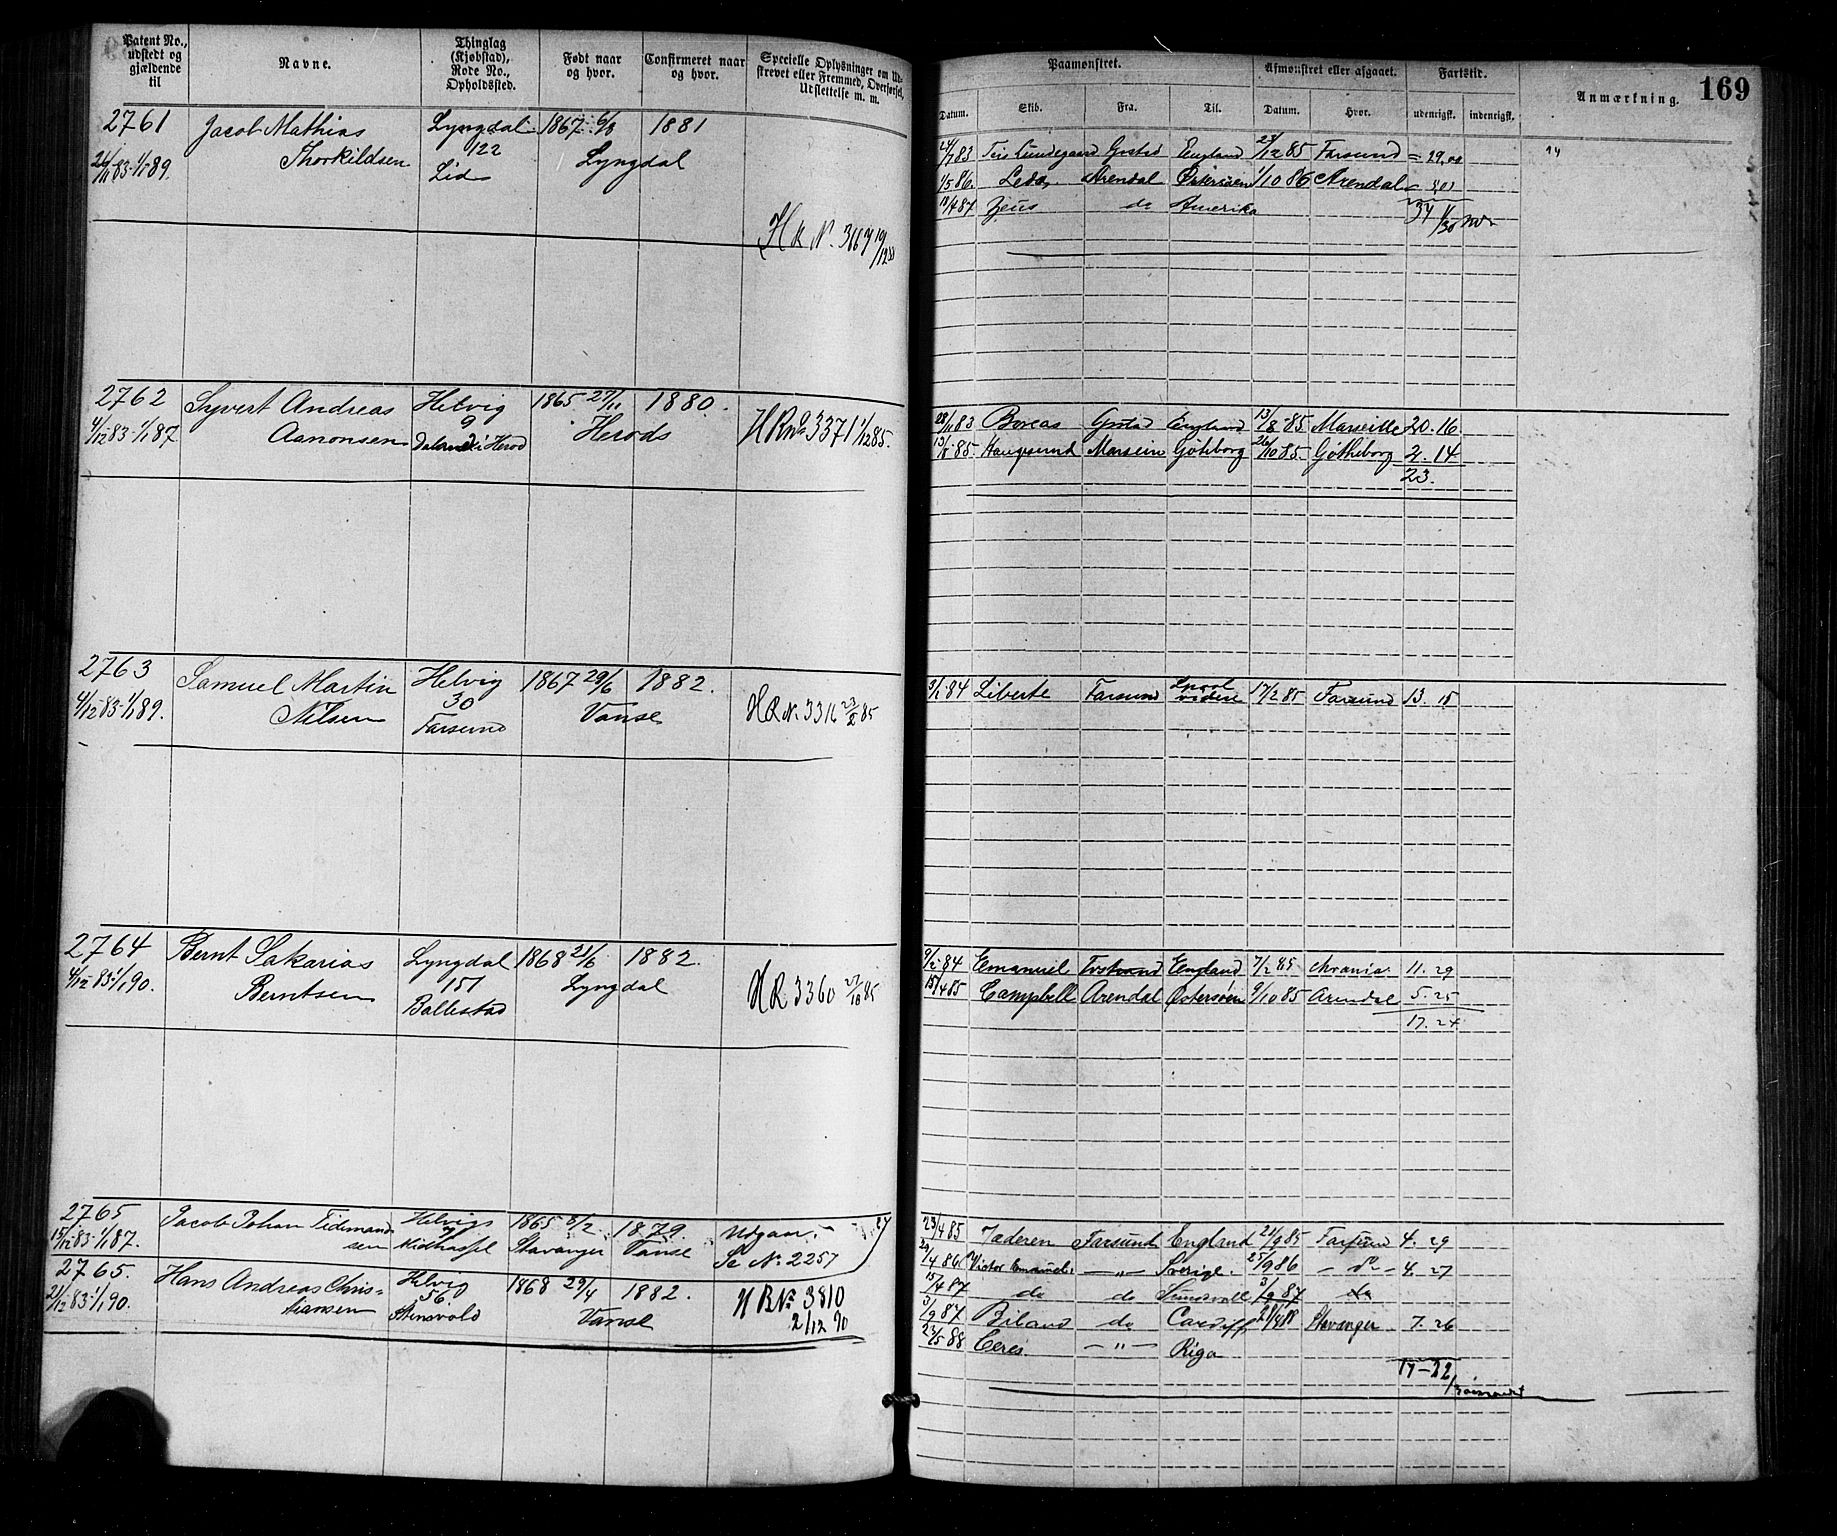 Patent No., udstedt og gjældende til
Navne.
Thinglag (Kjøbstad), Rode No., Opholdssted.
Født naar og hvor.
Confirmeret naar og hvor.
Specielle Oplysninger om Udskrevet eller Fremmed, Overførsel, Udslettelse m. m.
Paamønstret.
Afmønstret eller afgaaet.
Fartstid.
Anmærkning.
169
Datum. Skib. Fra. Til. Datum. Hvor. udenrigsk. indenrigsk.
2761 Jacob Mathias Lyngdal 1867 6/8 1881
83-1/1 89. Thorkildsen 122 Lyngdal
Lid
H R N. 3667 19/12 88
83 England 85 Farsund
1/5 86. Leda Arendal Østersøen 1/10 86 Arendal
87 Zeus do Amerika
2762 Syvert Andreas Helvig 1865 27/11 1880.
4/12 83-1/1 87 Aanonsen 9 Herods H R No 3371 1/12 85.
i Herod
28/11 83 Boreas England 13/8 85 Marseille 20. 16
13/8 85 Haugesund Göteborg 26/10 85 Götheborg 2. 14
23.
2763 Samuel Martin Helvig 1867 29/6 1882.
4/12 83-1/1 89. Nilsen 30 Vanse H R N. 3316 85
Farsund
84 Liberte Farsund 17/2 85 Farsund 13. 15
2764 Bernt Sakarias Lyngdal 1868 21/6 1882.
4/12 83-1/1 90. Berntsen 151 Lyngdal H R. 3360 27/10 85
Ballestad
84 Emanuel England 7/2 85 11. 29
15/4 85 Campbell Arendal Østersøen 9/10 85 Arendal 5. 25
17. 24
2765 Jacob Johan Tidemand Helvigs 1865 1879. Udgaar
15/12 83-1/1 87. sen Stavanger Vanse Se No. 2257
2765. Hans Andreas Chris- Helvig 1868 29/4 1882. H R No 3810
21/12 83-1/1 90. tiansen 56 Vanse 2/12 90
Stensvold
23/4 85 Jæderen Farsund England 21/9 85 Farsund 4. 29
86 Victor Emanuel — " — Sverige. 25/9 86 — do — 4. 27
15/4 87 do do Sundsvall 3/9 87 do
3/9 87 do Cardiff 88 Stavanger 7. 26
23/5 88 Ceres — " — Riga
17-22